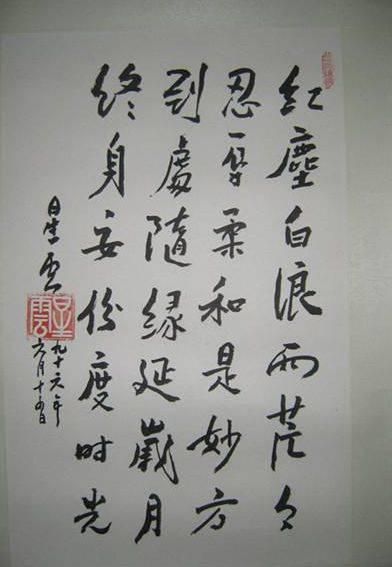 紅塵白浪两茫々
忍辱柔和是妙方
到處隨緣延歲月
終身安份度时光
星雲
星雲
九十六年
六月十五日